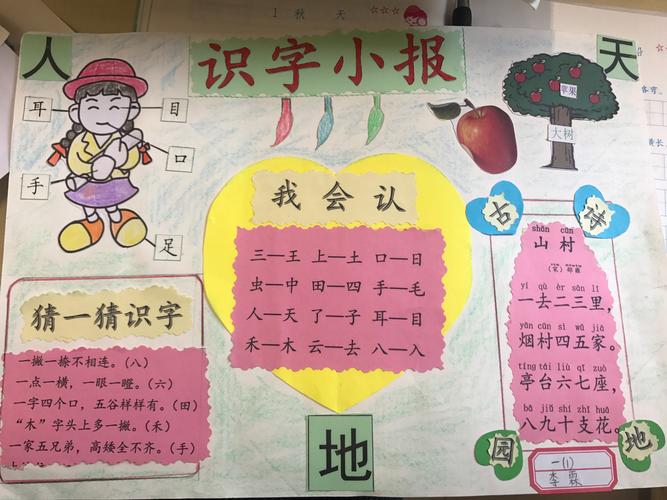 1 秋 天
人
识字小报
天
耳
目
口
手
足
苹果
大树
我会认
三—王 上—土 口—日
虫—中 田—四 手—毛
人—天 了—子 耳—目
禾—木 云—去 八—入
猜一猜识字
一撇一捺不相连。(八)
一点一横，一眼一瞪。(六)
一字四个口，五谷样样有。(田)
“木”字头上多一撇。(禾)
一家五兄弟，高矮全不齐。(手)
地
古诗
shān cūn
山村
(宋) 邵雍
yí qù èr sān lǐ
一去二三里，
yān cūn sì wǔ jiā
烟村四五家。
tíng tái liù qī zuò
亭台六七座，
bā jiǔ shí zhī huā
八九十支花。
园地
一(1)
李霖